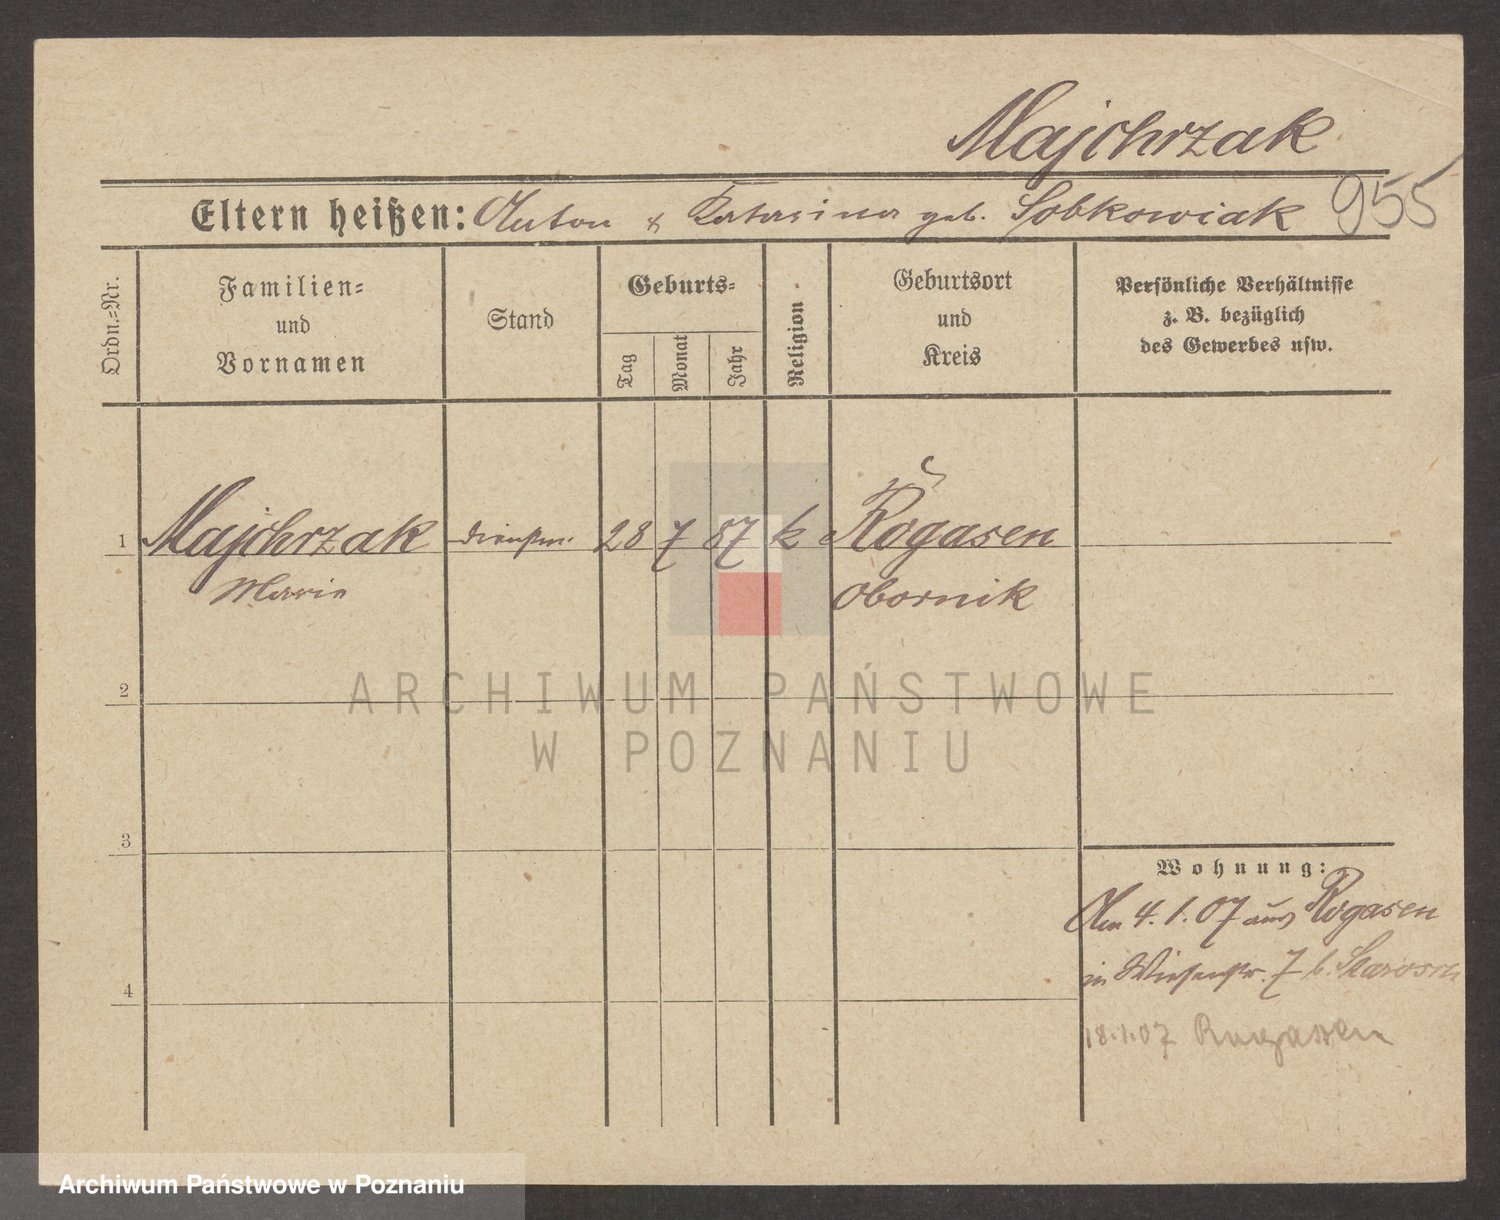 Majchrzak
Eltern heißen: Anton & Katarina geb. Sobkowiak 955
Ordn.-Nr.
Familien-
und
Vornamen
Stand
Geburts-
Tag
Monat
Jahr
Religion
Geburtsort
und
Kreis
Persönliche Verhältnisse
z. B. bezüglich
des Gewerbes usw.
1 Majchrzak Dienstm. 28 7 87 k Rogasen
Marie Obornik
2
ARCHIWUM PAŃSTWOWE
W POZNANIU
3
Wohnung:
Am 4.1.07 aus Rogasen
in Wiesenstr. 7 b.
4
18.1.07 Rogasen
Archiwum Państwowe w Poznaniu